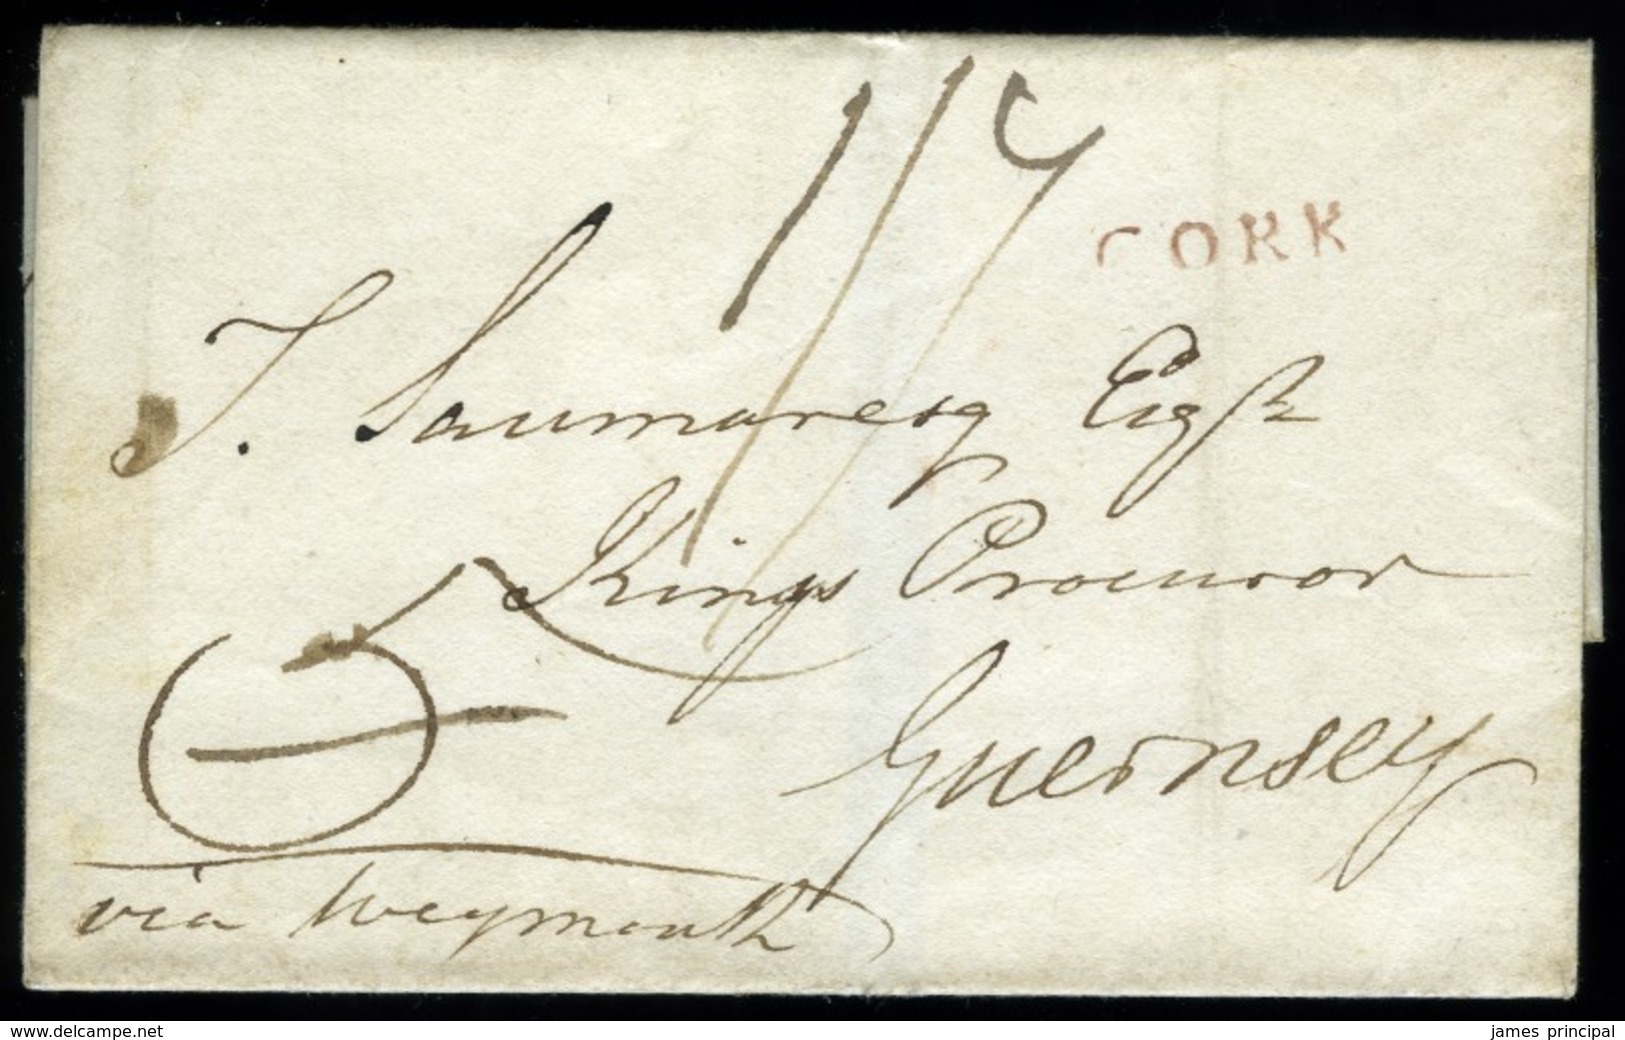 1/7
CORK
T. Saumaresq Esqr
Kings Procuror
Guernsey
via Weymouth
www.delcampe.net
james principal